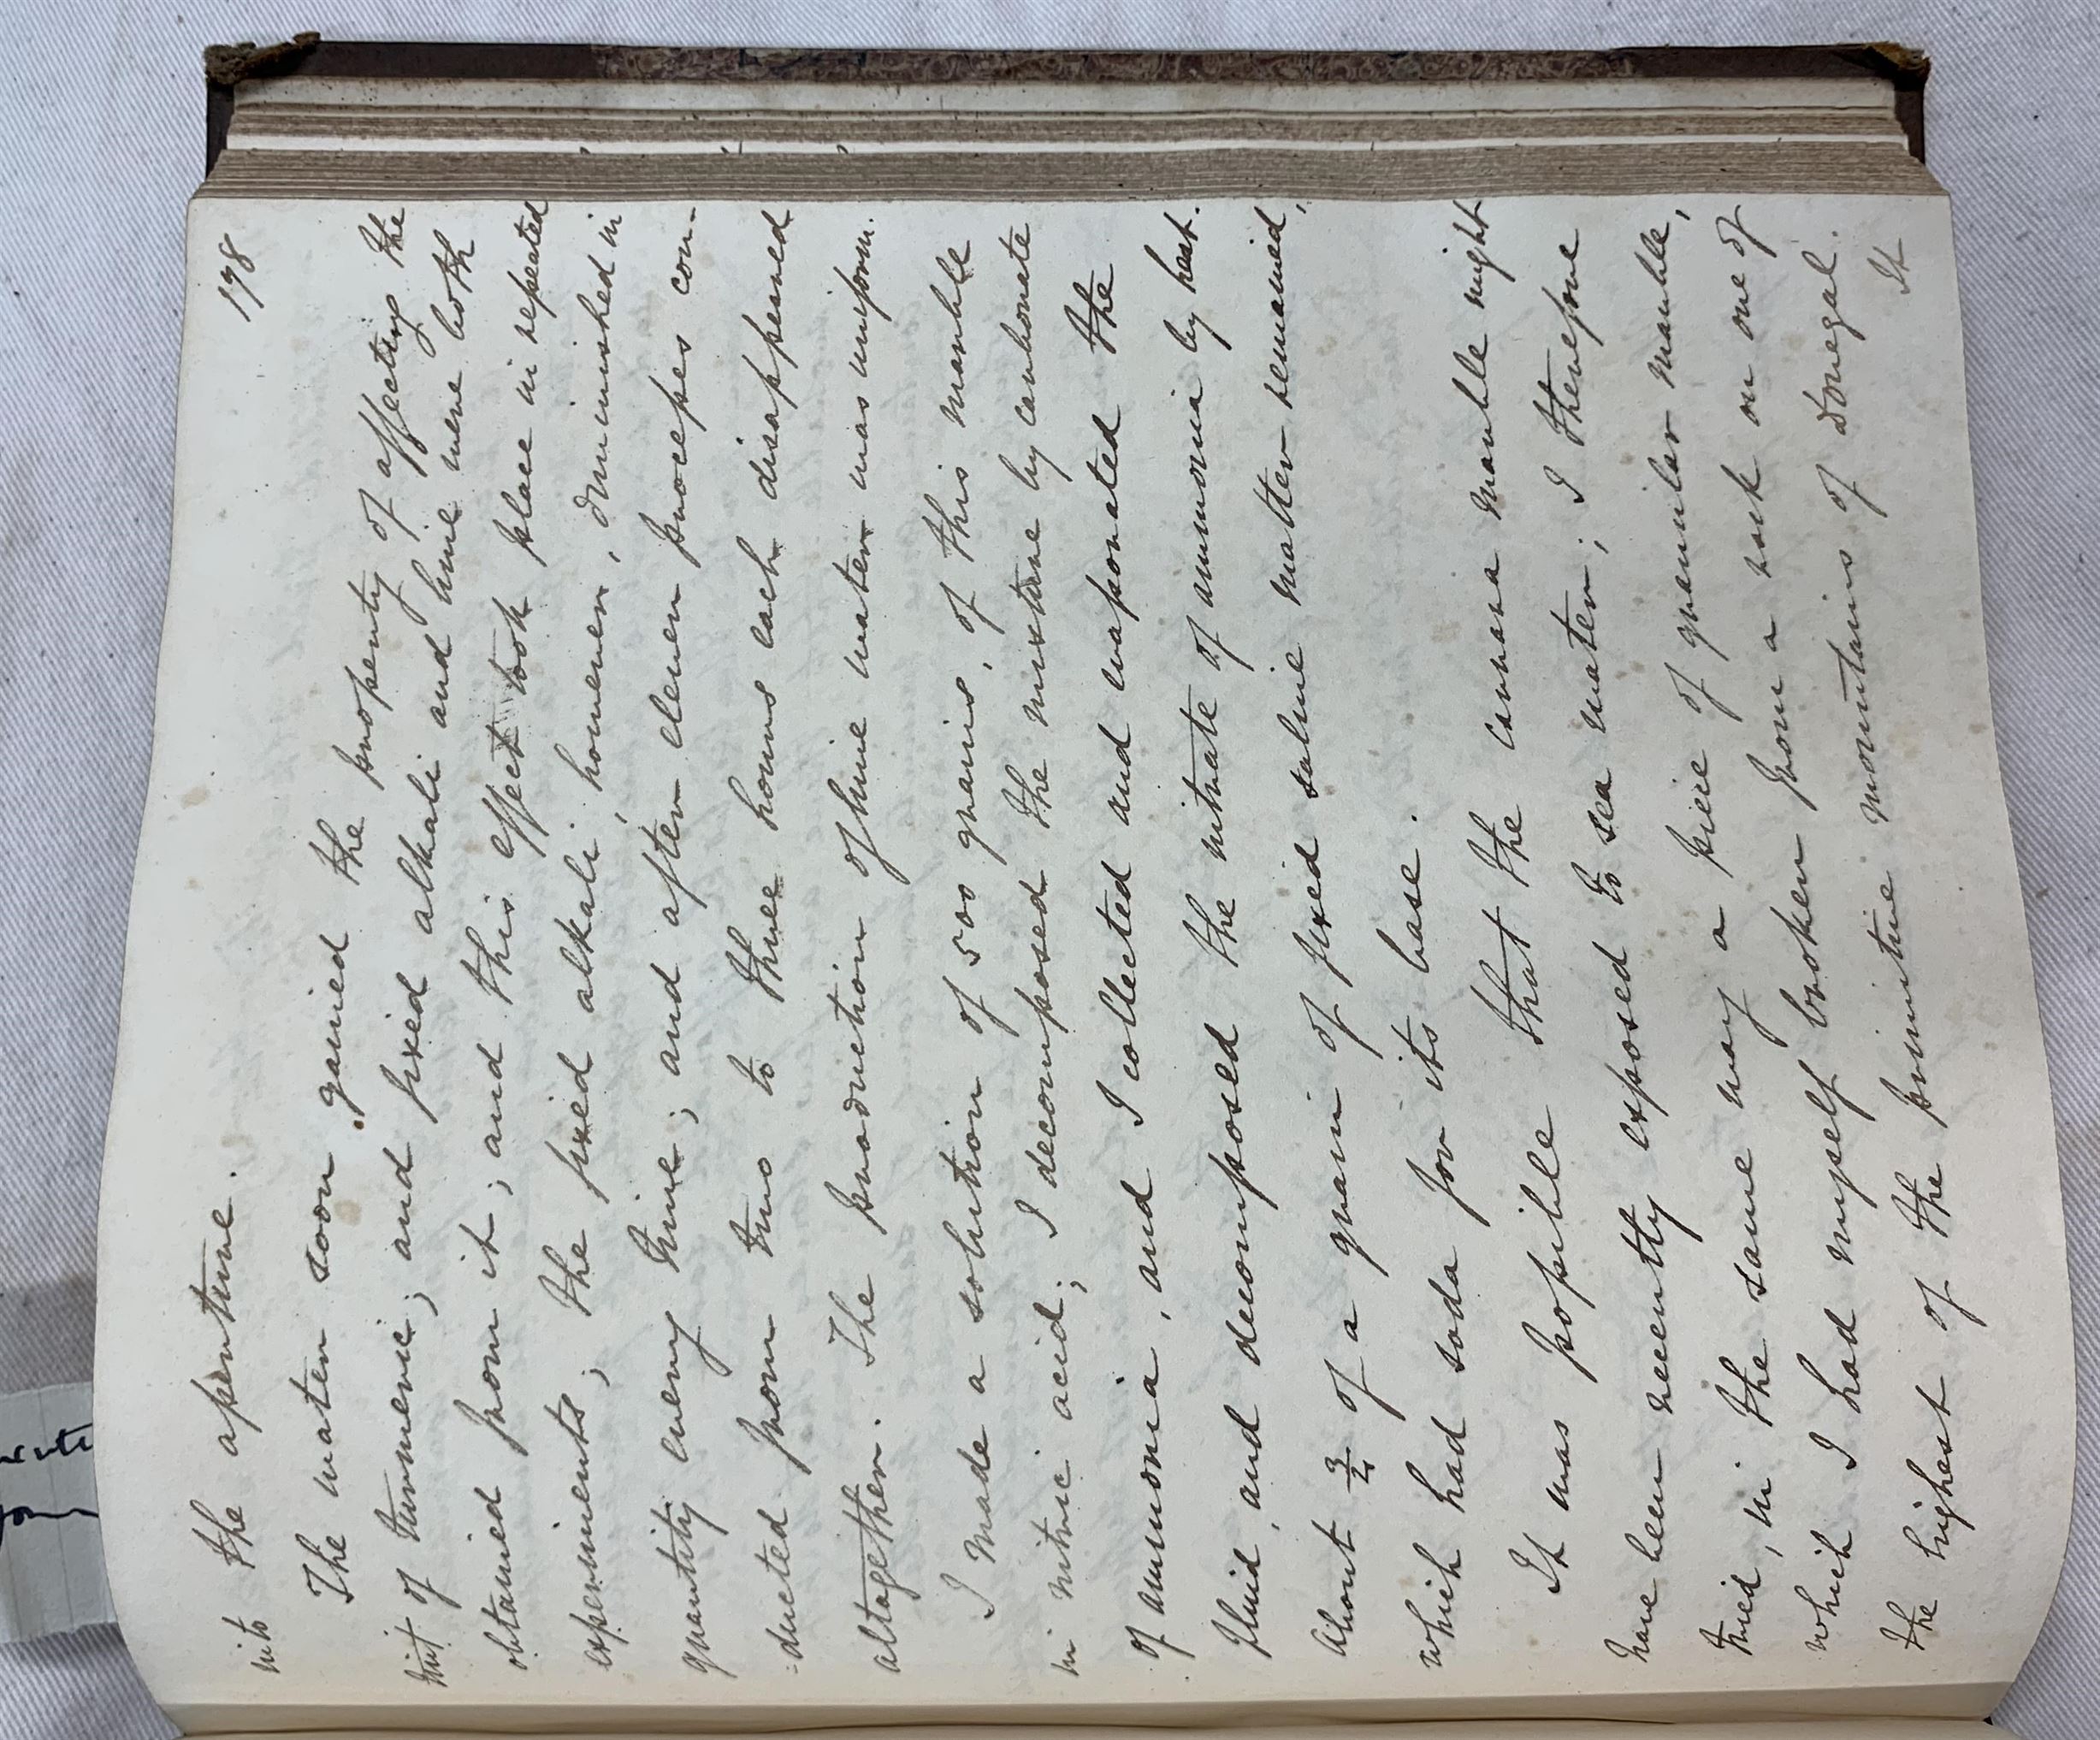 198
into the aperture.
The water soon gained the property of affecting the
tint of turmeric; and fixed alkali and lime were both
obtained from it; and this effect took place in repeated
experiments; the fixed alkali, however, diminished in
quantity every time; and after eleven processes con-
-ducted from two to three hours each disappeared
altagether. The production of lime water was uniform.
I made a solution of 500 grains, of this marble
in nitric acid; I decomposed the mixture by carbonate
of ammonia, and I collected and evaporated the
fluid, and decomposed the nitrate of ammonia by heat.
About 3/4 of a grain of fixed saline matter remained,
which had soda for its base.
It was possible that the carrara marble might
have been recently exposed to sea water; I therefore
tried, in the same way a piece of granular marble,
which I had myself broken from a rock on one of
the highest of the primitive mountains of Donegal.
It